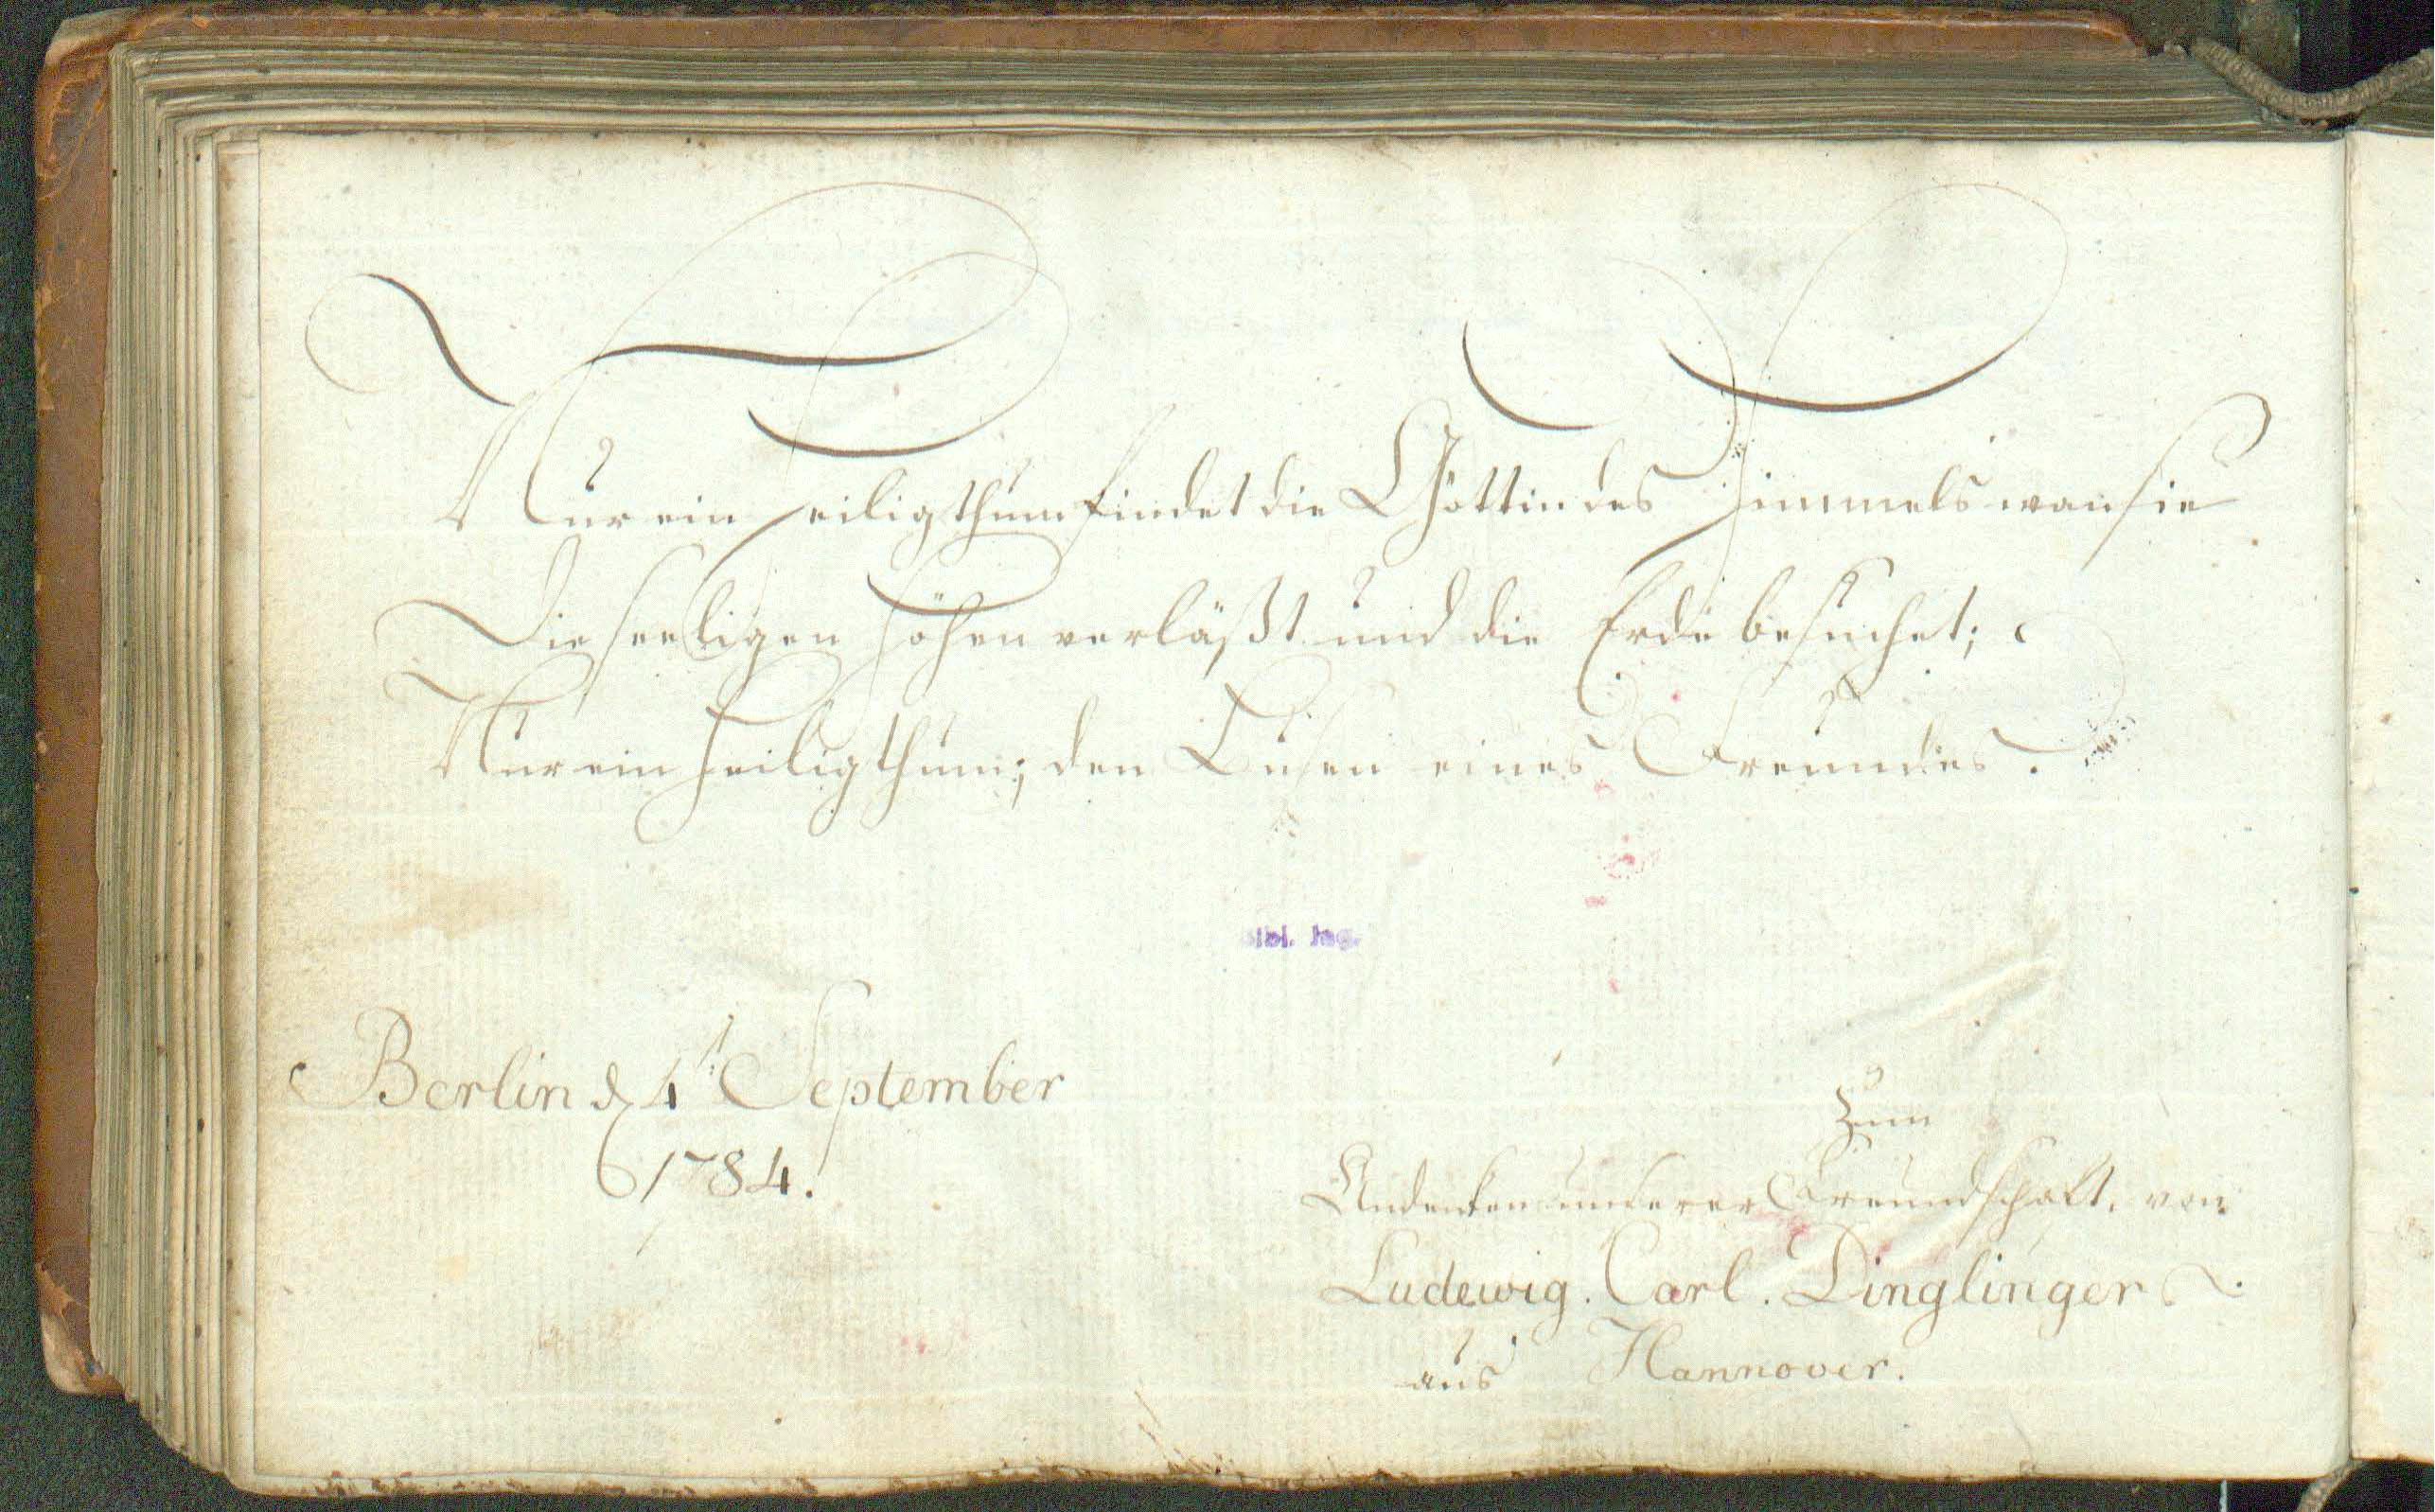 Nur ein Heiligthum findet die Göttin des Himmels wan sie
Die seeligen Höhen verläßt und die Erde besuchet;
Nur ein Heiligthum; den Busen eines Freundes.
Bibl. Jag.
Berlin d 4t September
1784.
Zum
Andenken unserer Freundschaft. von
Ludewig. Carl. Dinglinger
aus Hannover.